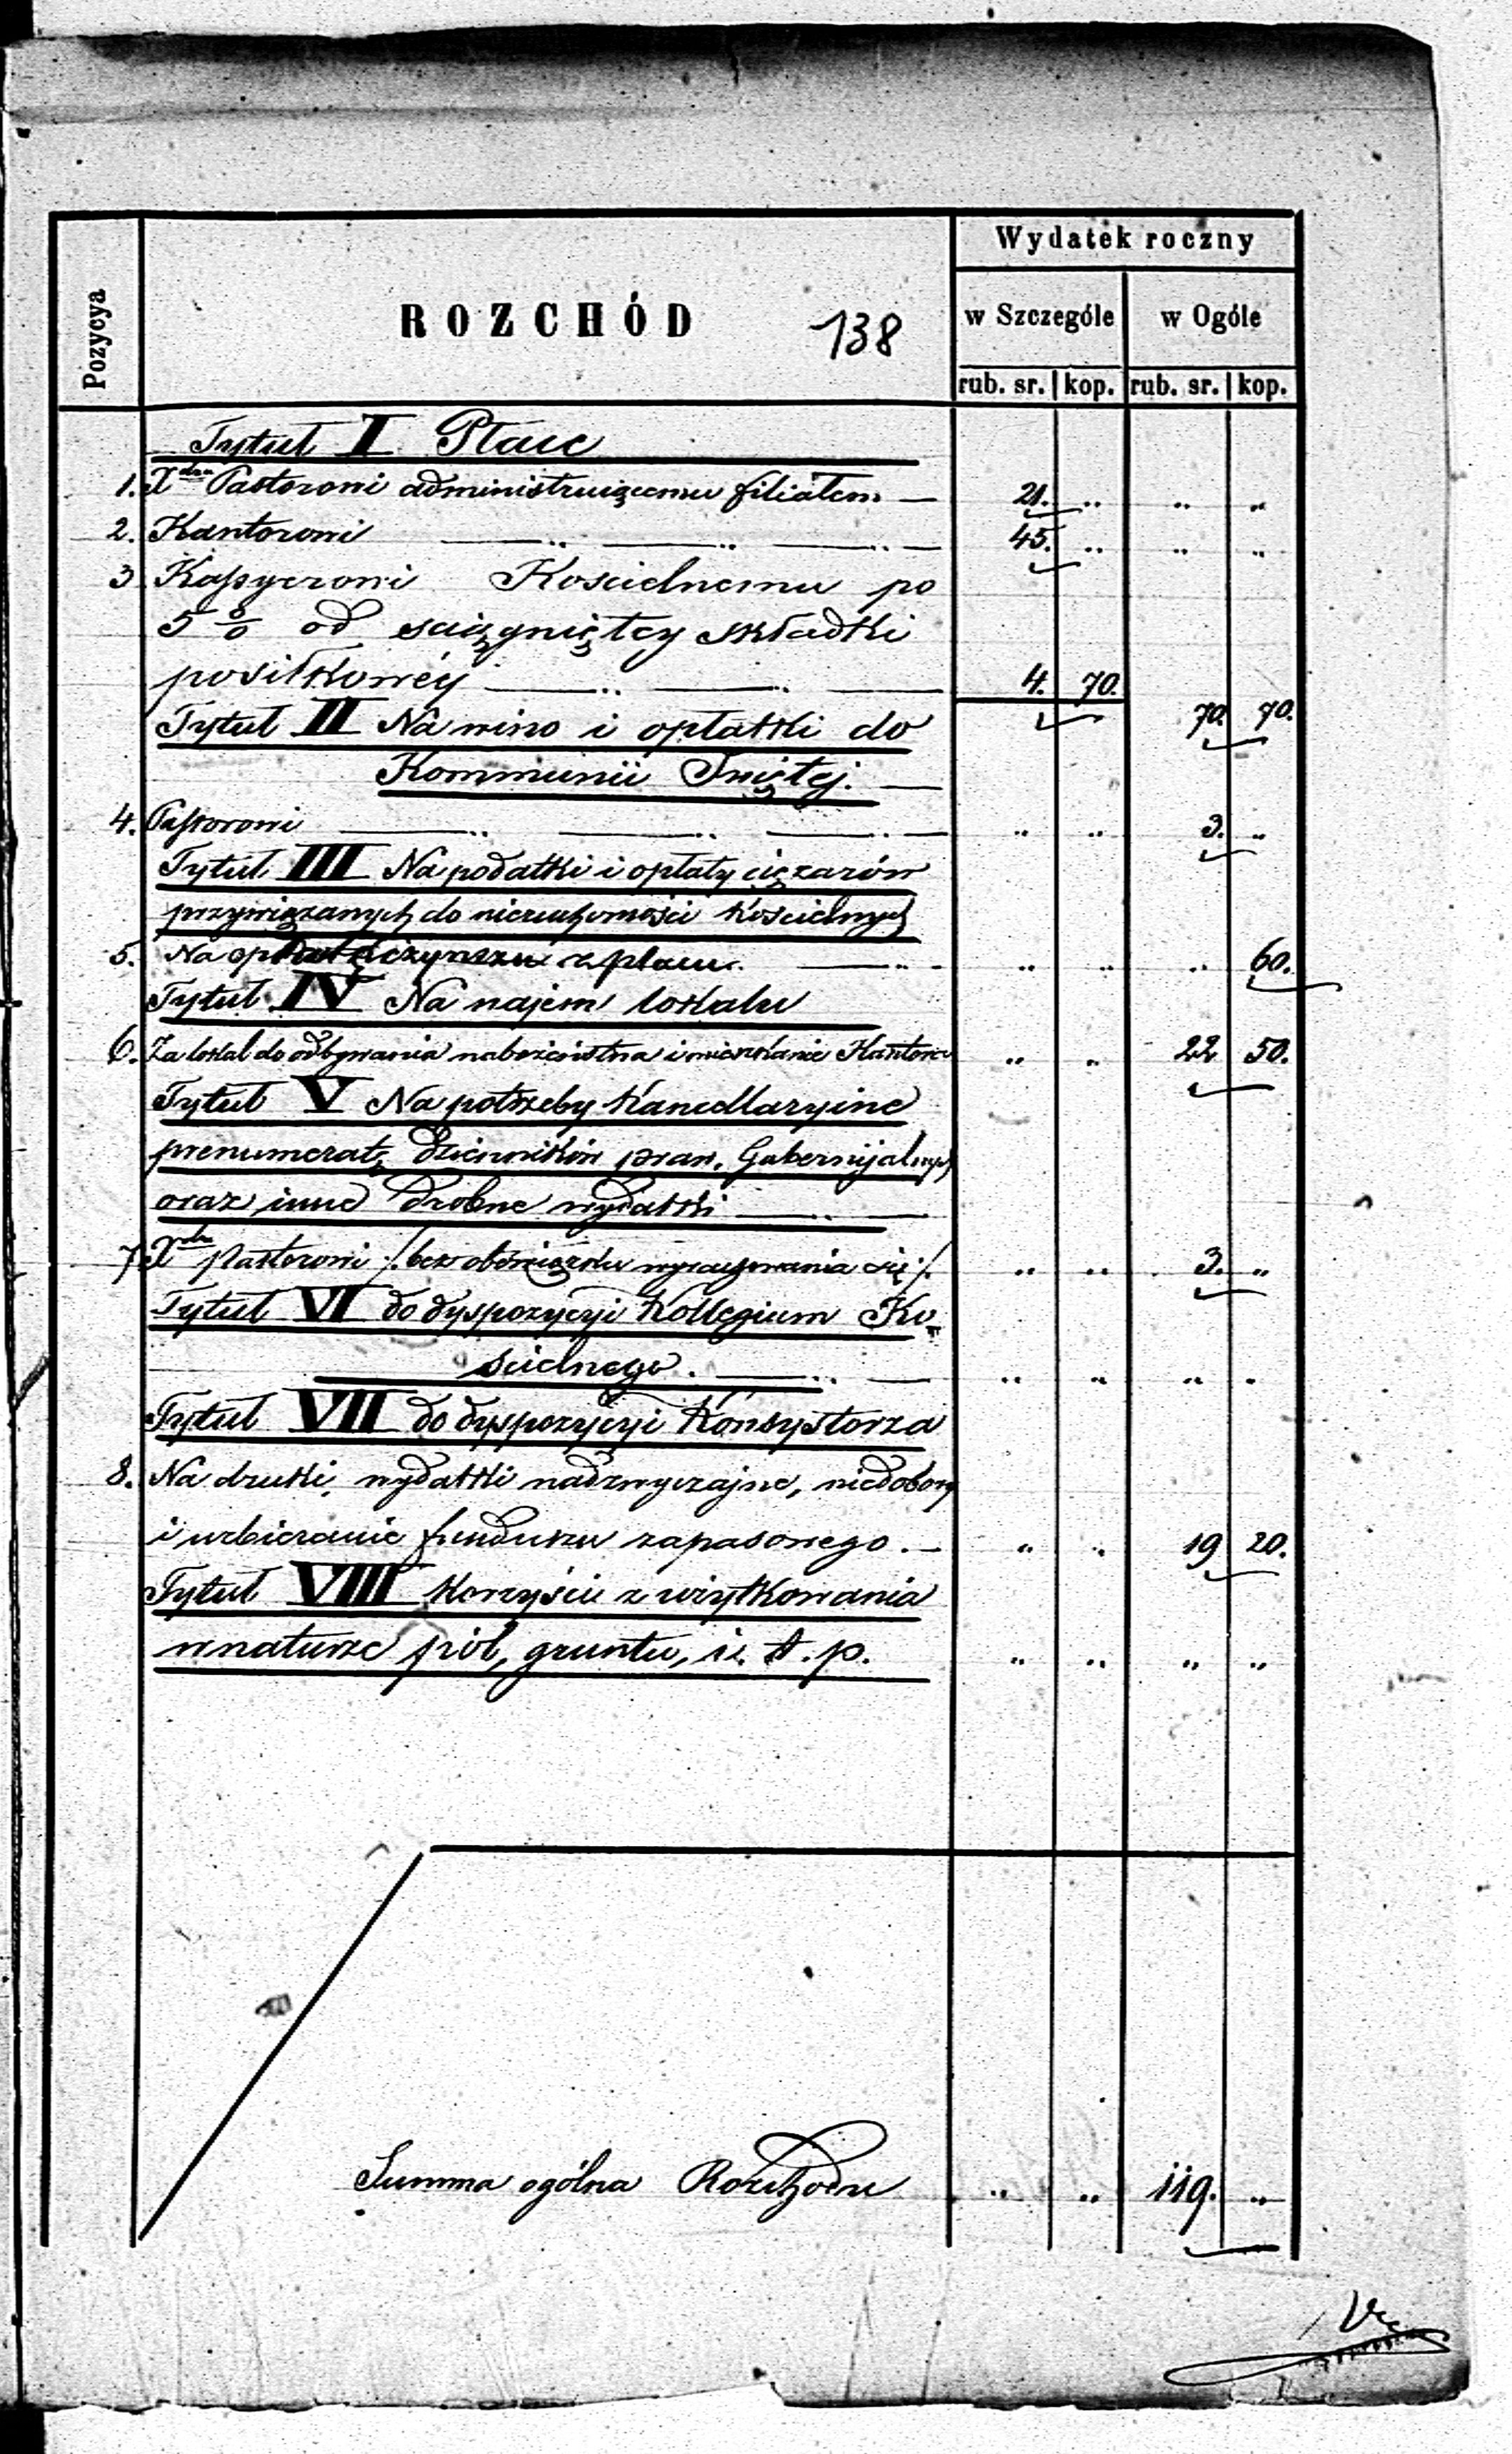 Wydatek roczny
Pozycya
ROZCHÓD 138
w Szczególe w Ogóle
rub. sr. kop. rub. sr. kop.
Tytuł I Płace
1. Xdzu Pastorowi administruiącemu filiałem — 21. „ „ „
2. Kantorowi — „ — „ — „ — 45. „ „ „
3 Kassyerowi Kościelnemu po
5 % od ściągniętey składki
posiłkowéy — „ — „ — 4. 70.
70. 70.
Tytuł II Na wino i opłatki do
Kommunii Świętej. —
4. Pastorowi — „ — „ — „ — „ „ 3. „
Tytuł III Na podatki i opłaty ciężarów
przywiązanych do nieruchomości Kościelnych
5. Na opłatę czynszu z placu. — „ - „ „ „ 60.
Tytuł IV Na najem lokalu
6. Za lokal do odbywania nabożeństwa i mieszkanie Kantora „ „ 22 50.
Tytuł V Na potrzeby Kancellaryine
prenumeratę dzienników praw. Gubernijalnych
oraz inne drobne wydatki — „ —
7. Xdzu Pastorowi /. bez obowiązku wyracho̶wania się ./ „ „ 3. „
Tytuł VI do dyspozycyi Kollegium Ko-
ścielnego. — „ — „ „ „ „
Tytuł VII do dyspozycyi Konsystorza
8. Na druki, wydatki nadzwyczajne, niedobory
i uzbieranie funduszu zapasowego. — „ „ 19 20.
Tytuł VIII Korzyści z użytkowania
w naturze pól, gruntu, i t. p. „ „ „ „
Summa ogólna Rozchodu „ „ 119. „